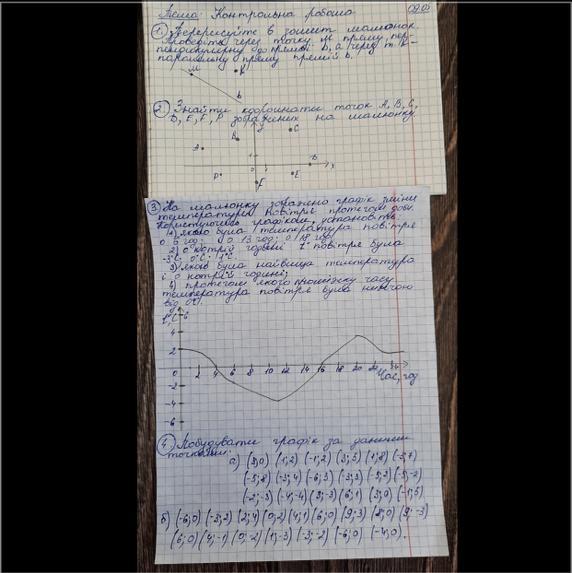 Тема: Контрольна робота 09.05
1. Перерисуйте в зошит малюнок.
Проведіть через точку М пряму, пер-
пендикулярну до прямої b, а через т. К -
паралельну пряму прямій b.
М К
b
2. Знайти координати точок А, В, С,
D, E, F, P зображених на малюнку.
y
C
B
A
1
D x
1
P E
F
3. На малюнку зображено графік зміни
температури повітря протягом доби.
Користуючись графіком, установіть:
1) якою була температура повітря
о 6 год; о 13 год; о 18 год
2) о котрій годині t° повітря була
-3°C; 0°C; 1°C
3) якою була найвища температура
і о котрій годині;
4) протягом якого проміжку часу
температура повітря була нижчою
від 0°C.
t°,C 6
4
2
0 2 4 6 8 10 12 14 16 18 20 22 24
Час, год
-2
-4
-6
4. Побудувати графік за даними
точками:
а) (3;0) (1;2) (-1;2) (3;5) (1;8) (-3;7)
(-5;8) (-3;4) (-6;3) (-3;3) (-5;2) (-5;-2)
(-2;-3) (-4;-4) (3;-3) (6;1) (3;0)
б) (-6;0) (-3;2) (2;4) (0;2) (4;1) (6;0) (9;3) (8;0) (9;-3)
(6;0) (4;-1) (0;-2) (1;-3) (-3;-2) (-6;0) (-4;0).